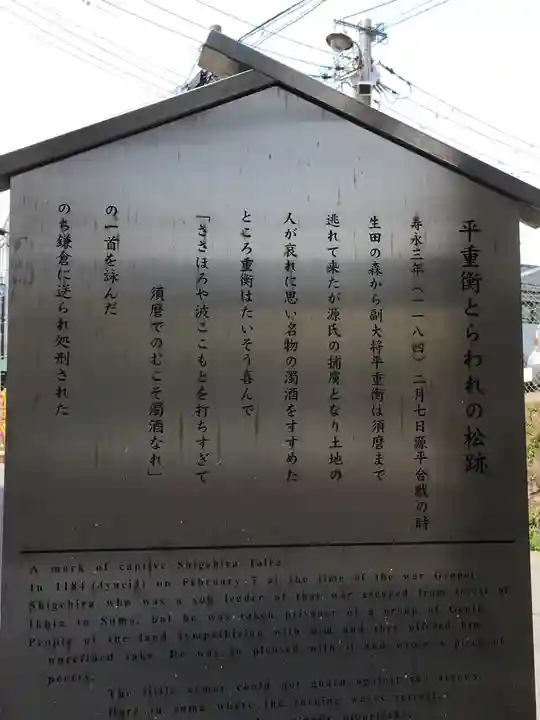 平重衡とらわれの松跡
寿永三年（一一八四）二月七日源平合戦の時
生田の森から副大将平重衡は須磨まで
逃れて来たが源氏の捕虜となり土地の
人が哀れに思い名物の濁酒をすすめた
ところ重衡はたいそう喜んで
「ささほろや波ここもとを打ちすぎて
須磨でのむこそ濁酒なれ」
の一首を詠んだ
のち鎌倉に送られ処刑された
A mark of captive Shigehira Taira
In 1184 (Jyuei3) on February 7 at the time of the war Genpei,
Shigehira who was a sub leader of that war escaped from forest of
Ikuta to Suma, but he was taken prisoner of a group of Genji.
People of the land sympathizing with him and they offered him
unrefined sake. He was so pleased with it and wrote a piece of
poetry.
The little armor could not guard against the
Here in suma where the turning waves